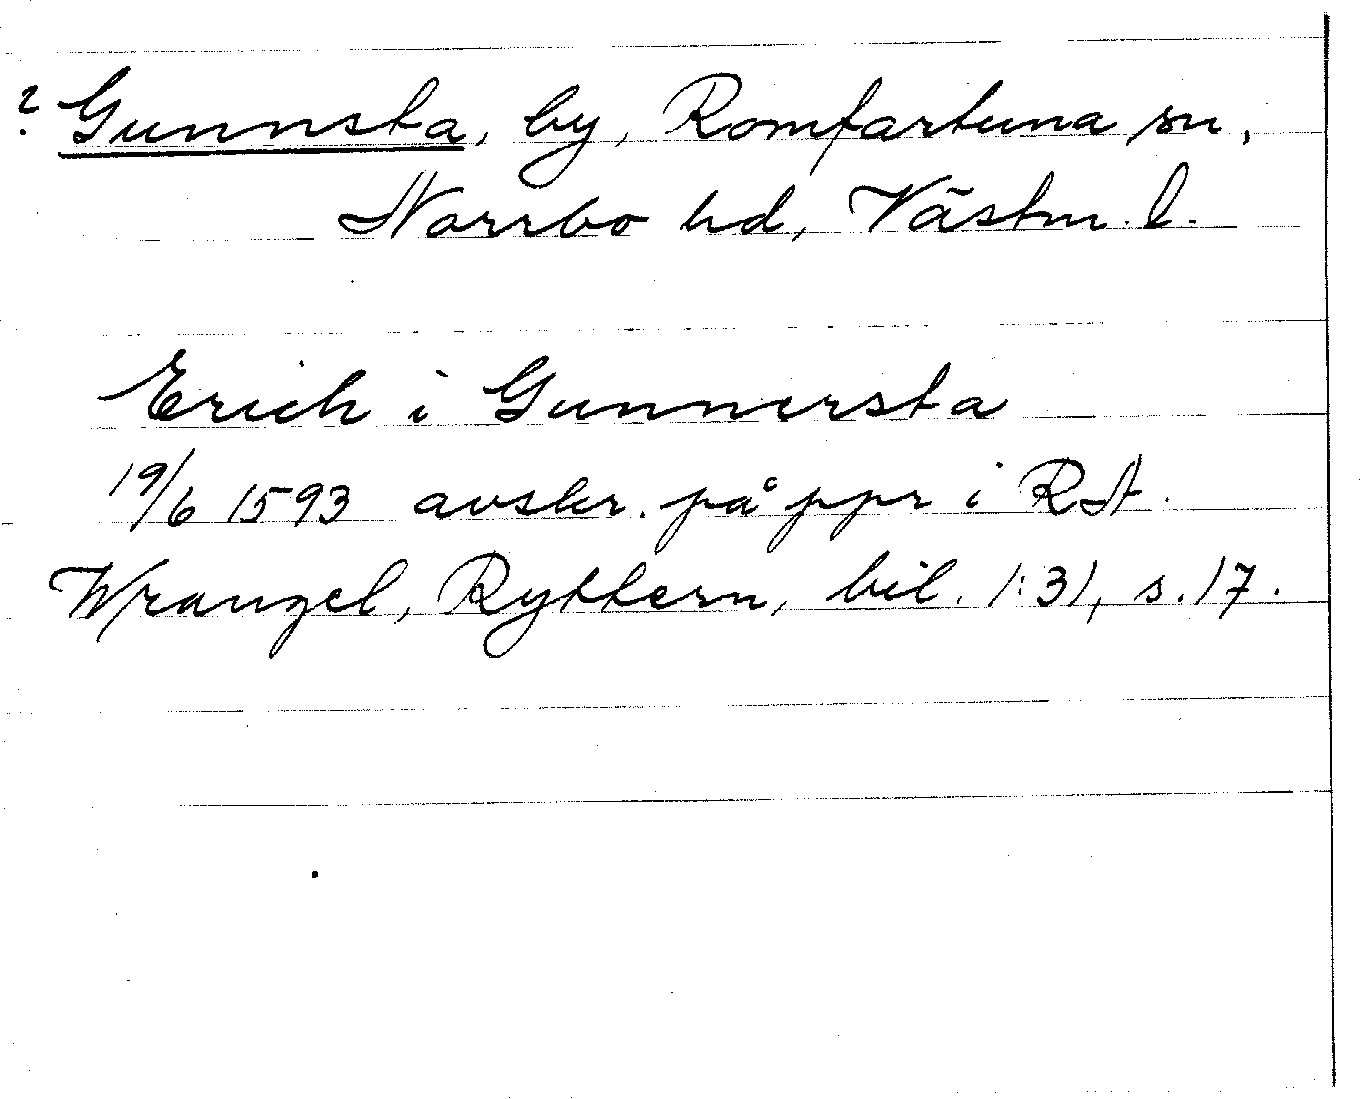 ? Gunnsta, by, Romfartuna sn,
Norrbo hd, Västm. l.
Erich i Gunnersta
19/6 1593 avskr. på ppr i RA.
Wrangel, Ryttern, bil. 1:31, s. 17.